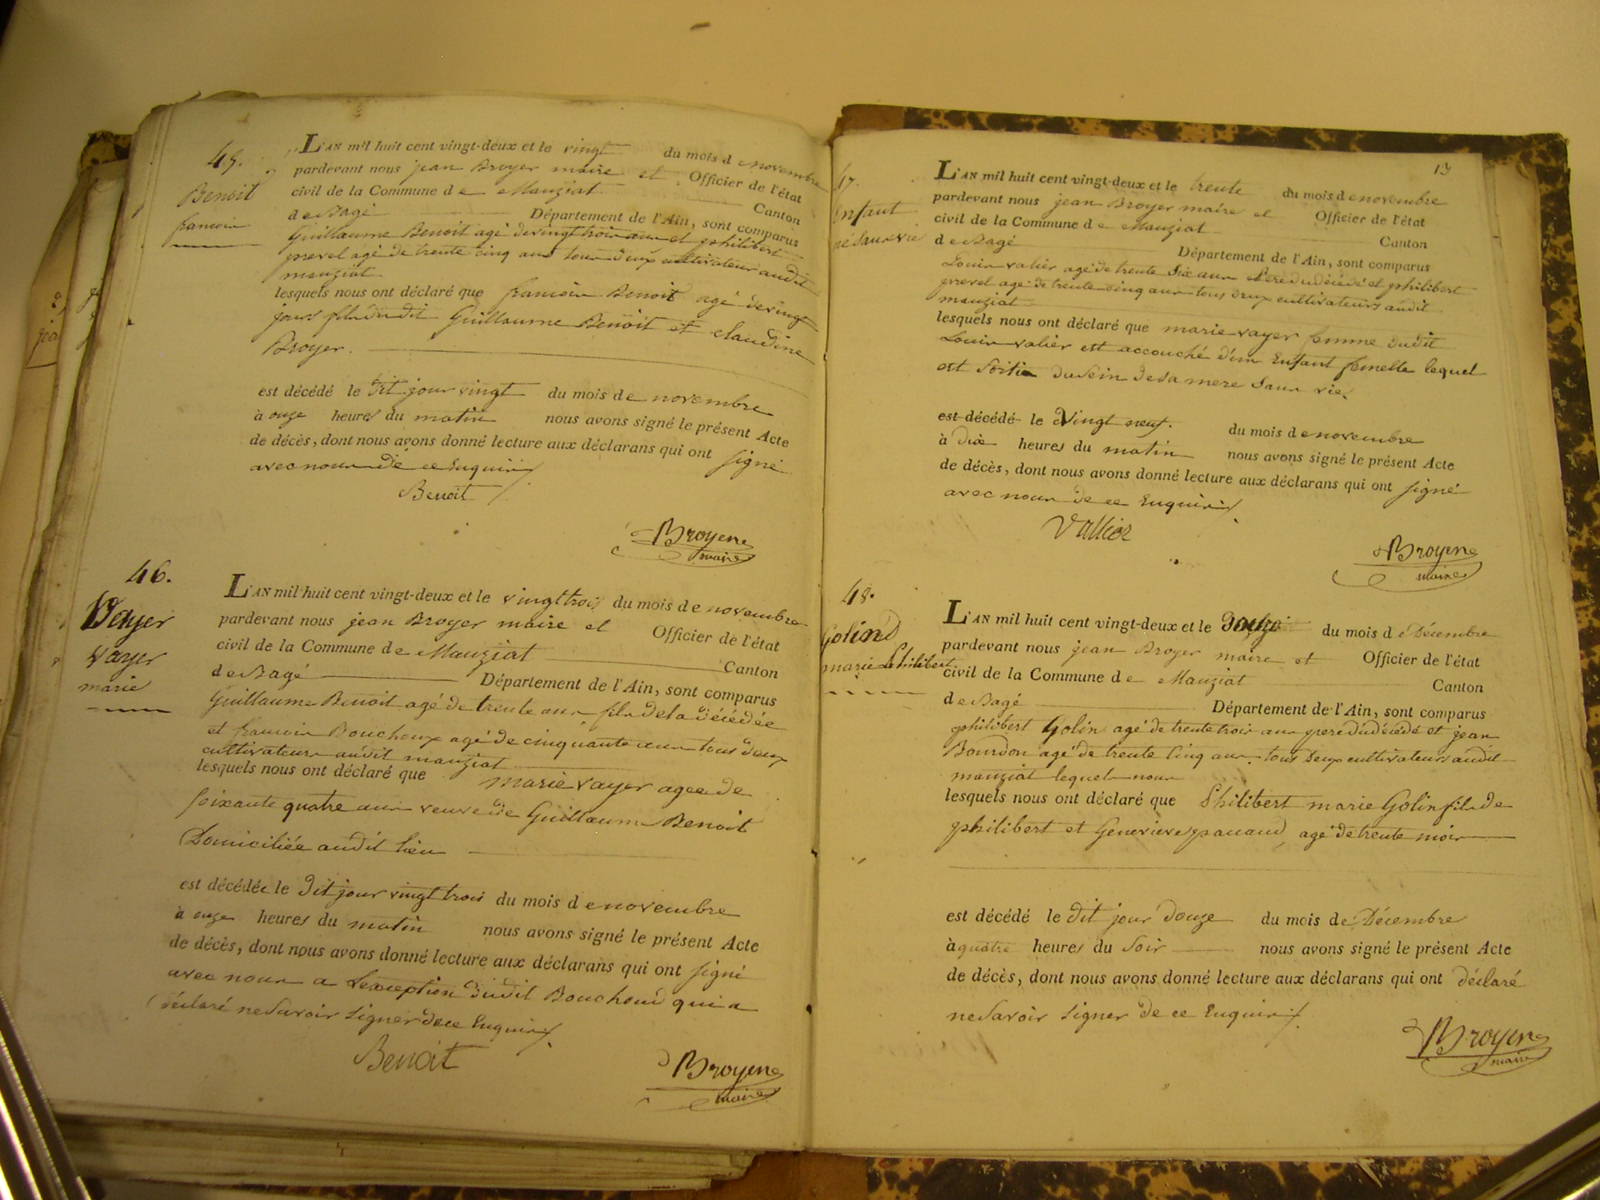 45.
Benoit
francois
L'AN mil huit cent vingt-deux et le vingt du mois de novembre
pardevant nous jean Broyer maire et Officier de l'état
civil de la Commune de Mauziat Canton
de Bagé Département de l'Ain, sont comparus
Guillaume Benoit agé de vingt trois ans et philibert
prevel agé de trente cinq ans tous deux cultivateurs audit
mauziat
lesquels nous ont déclaré que francois Benoit agé de vingt
jours fils dudit Guillaume Benoit et claudine
Broyer.
est décédé le dit jour vingt du mois de novembre
à onze heures du matin nous avons signé le présent Acte
de décès, dont nous avons donné lecture aux déclarans qui ont signé
avec nous de ce Enquis
Benoit
Broyer
maire
46.
Vayer
marie
L'AN mil huit cent vingt-deux et le vingt trois du mois de novembre
pardevant nous jean Broyer maire et Officier de l'état
civil de la Commune de Mauziat Canton
de Bagé Département de l'Ain, sont comparus
Guillaume Benoit agé de trente ans fils de la décédée
et francois Bouchoux agé de cinquante ans tous deux
cultivateurs audit mauziat
lesquels nous ont déclaré que marie vayer agee de
soixante quatre ans veuve de Guillaume Benoit
Domiciliée audit lieu
est décédée le dit jour vingt trois du mois de novembre
à onze heures du matin nous avons signé le présent Acte
de décès, dont nous avons donné lecture aux déclarans qui ont signé
avec nous a Lexception dudit Bouchoud qui a
déclaré ne Savoir Signer de ce Enquis
Benoit
Broyer
maire
13
47.
Enfant
né Sans vie
L'AN mil huit cent vingt-deux et le trente du mois de novembre
pardevant nous jean Broyer maire et Officier de l'état
civil de la Commune de Mauziat Canton
de Bagé Département de l'Ain, sont comparus
Louis valier agé de trente Six ans Père du décédé et philibert
prevel agé de trente cinq ans tous deux cultivateurs audit
mauziat
lesquels nous ont déclaré que marie vayer femme dudit
Louis valier est accouché d'un Enfant femelle lequel
est Sortie du Sein de Sa mere Sans vie.
est décédé le Vingt neuf. du mois de novembre
à dix heures du matin nous avons signé le présent Acte
de décès, dont nous avons donné lecture aux déclarans qui ont signé
avec nous de ce Enquis
Vallier
Broyer
maire
48.
Golin
marie Philibert
L'AN mil huit cent vingt-deux et le Douze du mois de Décembre
pardevant nous jean Broyer maire et Officier de l'état
civil de la Commune de Mauziat Canton
de Bagé Département de l'Ain, sont comparus
philibert Golin agé de trente trois ans pere du décédé et jean
Bourdon agé de trente Cinq ans tous deux cultivateurs audit
mauziat lequel nous
lesquels nous ont déclaré que Philibert marie Golin fils de
philibert et Genevieve pauaud, agé de trente mois
est décédé le dit jour Douze du mois de Décembre
à quatre heures du Soir nous avons signé le présent Acte
de décès, dont nous avons donné lecture aux déclarans qui ont déclaré
ne Savoir Signer de ce Enquis
Broyer
maire